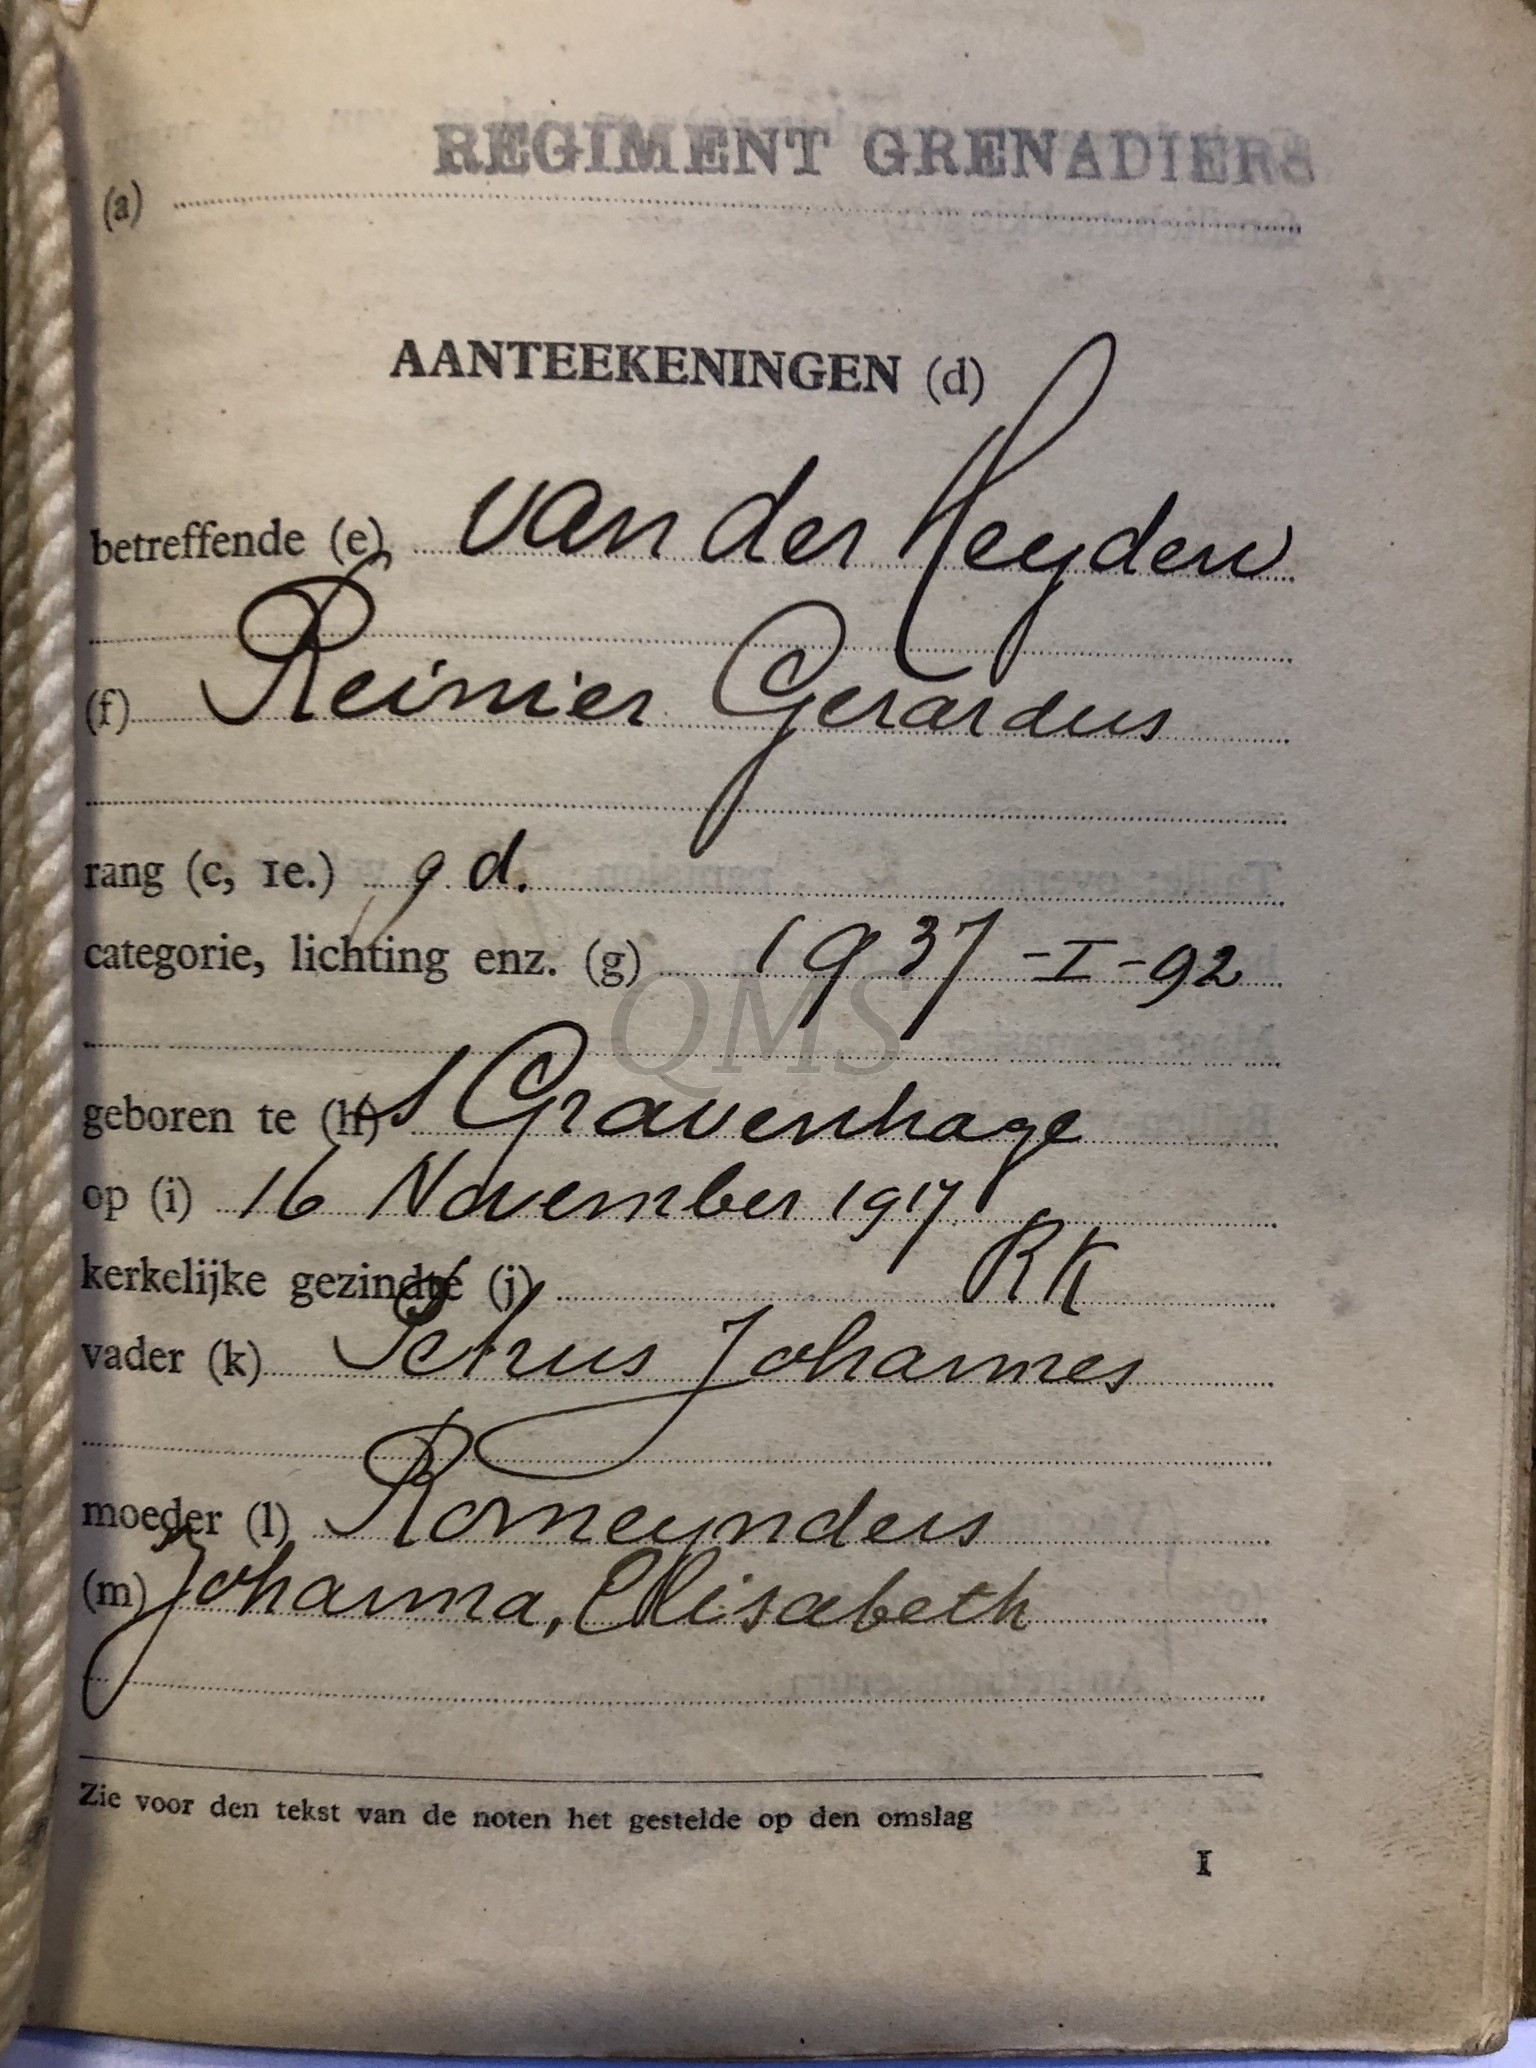 REGIMENT GRENADIERS
(a)
AANTEEKENINGEN (d)
betreffende (e) van der Heyden
(f) Reinier Gerardus
rang (c, 1e.) gd.
categorie, lichting enz. (g) 1937-I-92
QMS
geboren te (h) 's Gravenhage
op (i) 16 November 1917
kerkelijke gezindte (j) RK
vader (k) Petrus Johannes
moeder (l) Romeynders
(m) Johanna, Elisabeth
Zie voor den tekst van de noten het gestelde op den omslag
1